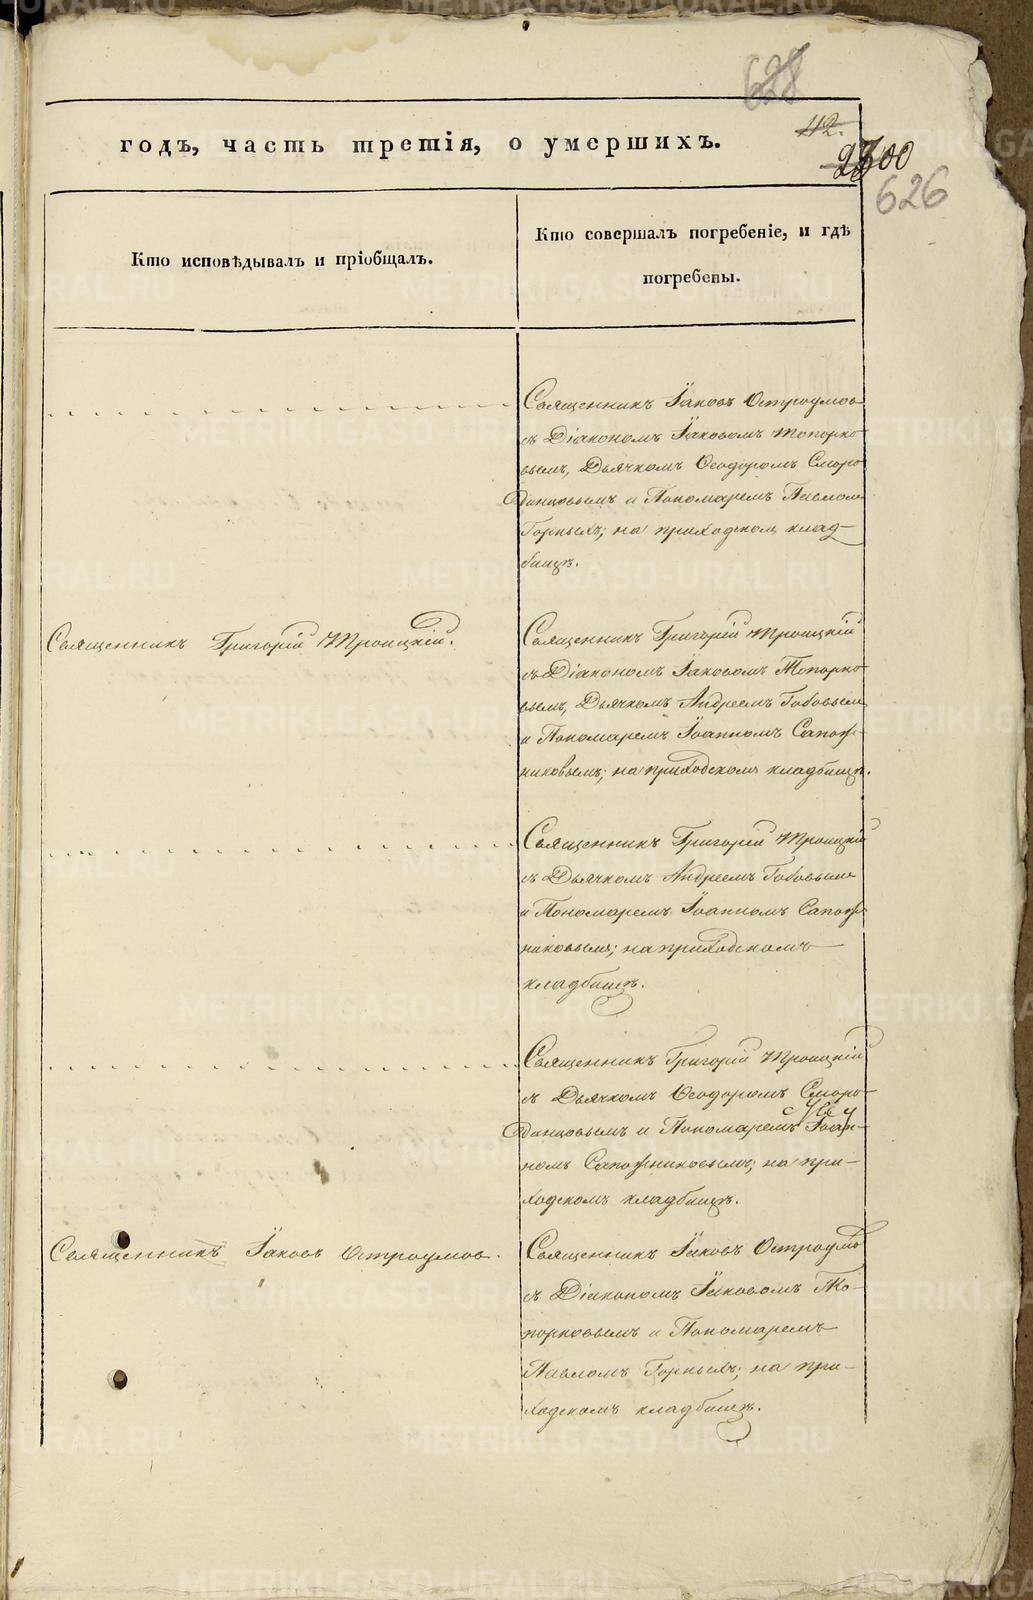 628
годъ, часть третія, о умершихъ.
42.
626
Кто исповѣдывалъ и пріобщалъ.
Кто совершалъ погребеніе, и гдѣ
погребены.
Священникъ Іаковъ Остроумовъ
съ Діакономъ Іаковомъ Топорко-
вымъ, Дьячкомъ Ѳеодоромъ Сморо-
динцовымъ и Пономаремъ Павломъ
Горныхъ; на приходском клад-
бищѣ.
Священникъ Григорій Троицкій.
Священникъ Григорій Троицкій
съ Діакономъ Іаковомъ Топорко-
вымъ, Дьячкомъ Андреемъ Бобовым
и Пономаремъ Іоанномъ Сапож-
никовымъ; на приходскомъ кладбищѣ.
Священникъ Григорій Троицкій
съ Дьячкомъ Андреемъ Бобовымъ
и Пономаремъ Іоанномъ Сапож-
никовымъ; на приходскомъ
кладбищѣ.
Священникъ Григорій Троицкій
съ Дьячкомъ Ѳеодоромъ Сморо-
динцовымъ и Пономаремъ Іоан-
номъ Сапожниковымъ; на при-
ходскомъ кладбищѣ.
Священникъ Іаковъ Остроумовъ.
Священникъ Іаковъ Остроумовъ
съ Діакономъ Іаковомъ То-
порковымъ и Пономаремъ
Павломъ Горныхъ; на при-
ходскомъ кладбищѣ.
METRIKI.GASO-URAL.RU